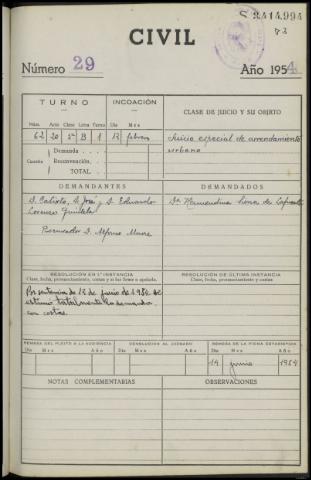 S 3.414.994
CIVIL
Número 29
Año 1954
TURNO
INCOACIÓN
CLASE DE JUICIO Y SU OBJETO
Núm. Año Clase Letra Turno Día Mes
62 20 5ª B 1 13 febrero
Juicio especial de arrendamiento
urbano
Cuantía
Demanda
Reconvención
TOTAL
DEMANDANTES
DEMANDADOS
D. Calixto, D. José y D. Eduardo
Lorenzo Quintela
Procurador D. Alfonso
RESOLUCIÓN EN 1.ª INSTANCIA
Clase, fecha, pronunciamiento, costas y si fue firme o apelada.
RESOLUCIÓN DE ÚLTIMA INSTANCIA
Clase, fecha, pronunciamiento y costas
Por sentencia de 12 de junio de 1954 se
estimó totalmente la demanda
con costas
REMESA DEL PLEITO A LA AUDIENCIA
DEVOLUCIÓN AL JUZGADO
REMESA DE LA FICHA ESTADÍSTICA
Día Mes Año Día Mes Año Día Mes Año
14 junio 1954
NOTAS COMPLEMENTARIAS
OBSERVACIONES